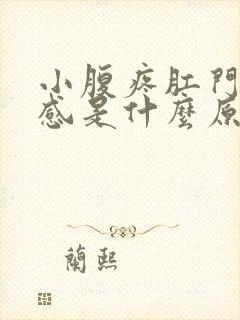 小腹疼肛門
感是什麼原
蘭熙